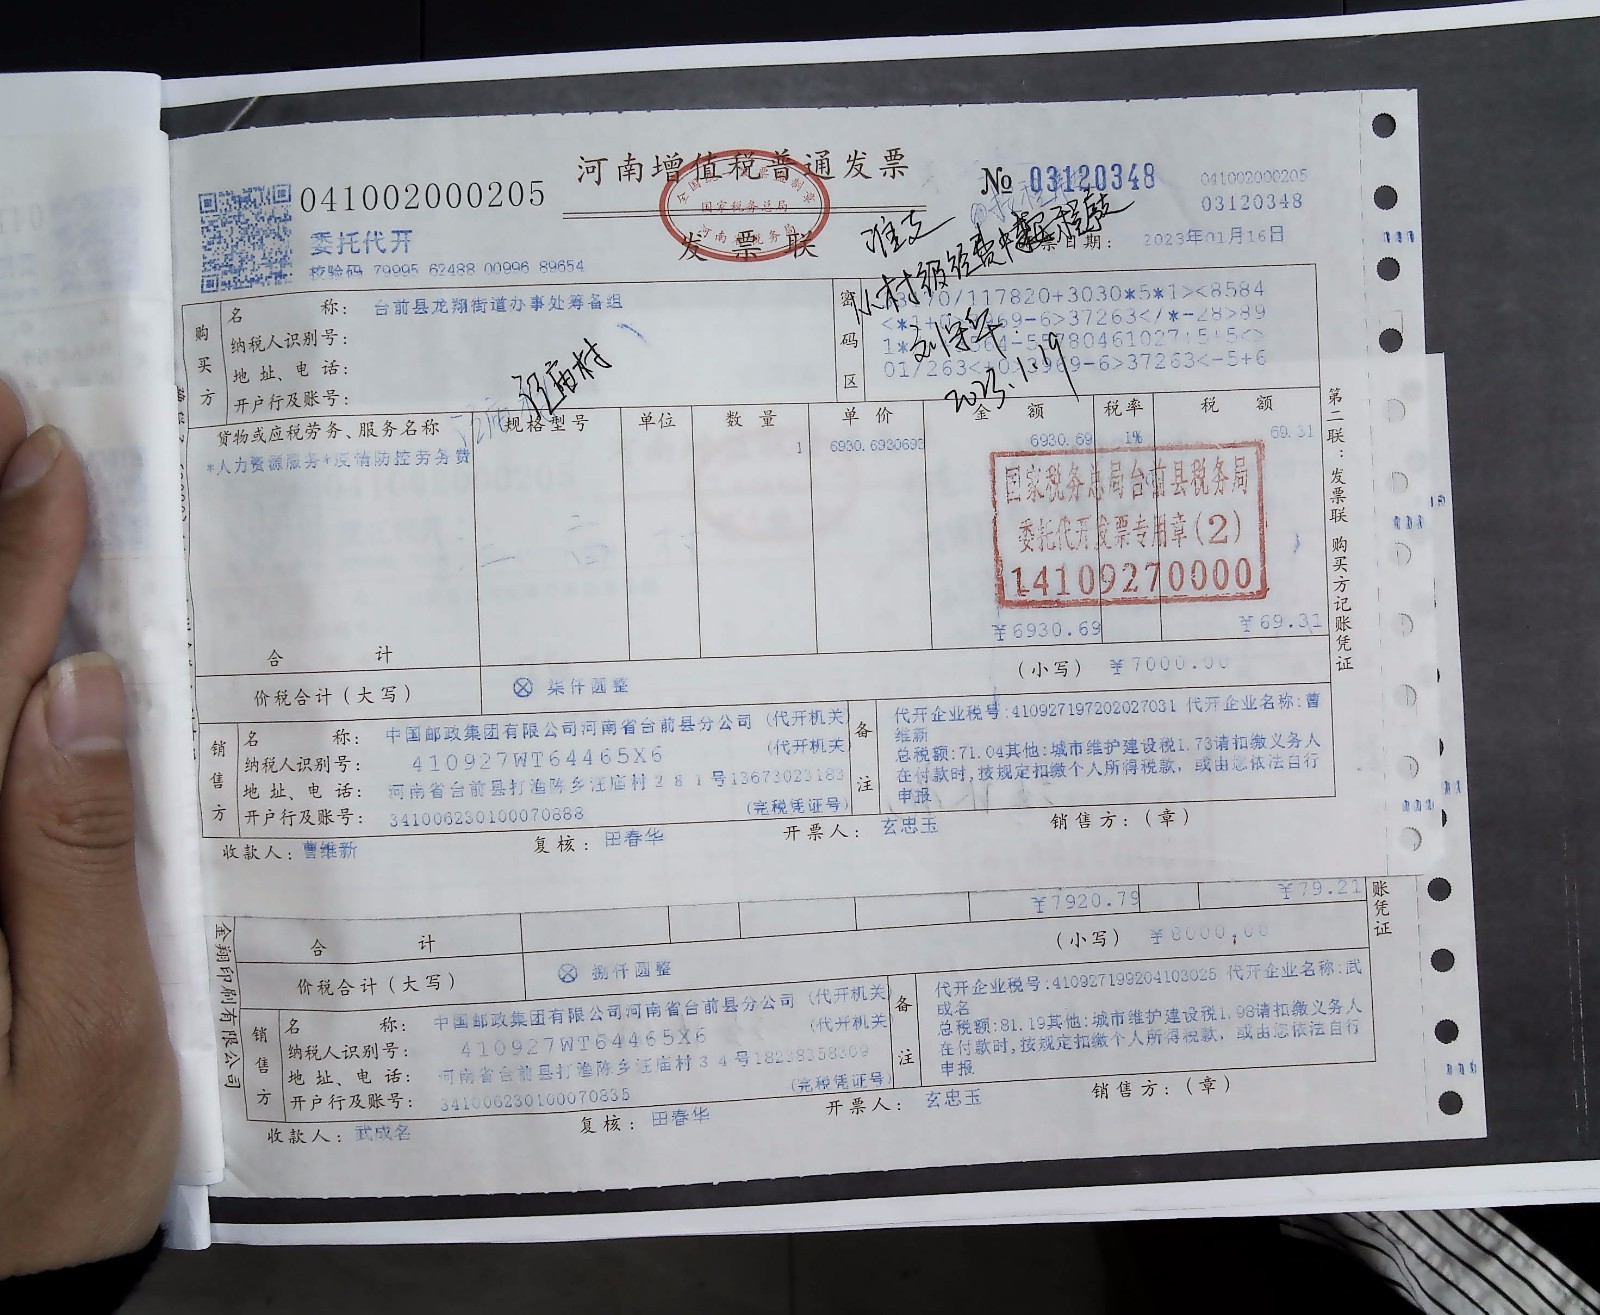 河南增值税普通发票
041002000205
№ 03120348
041002000205
03120348
委托代开
校验码 79995 62488 00996 89654
国家税务总局
发票联
准支
开票日期: 2023年01月16日
刘守华
2023.1.19
汪庙村
购买方
名称: 台前县龙翔街道办事处筹备组
纳税人识别号:
地址、电话:
开户行及账号:
密码区
70/117820+3030*5*1><8584
69-6>37263</*-28>89
01/263<+0>3969-6>37263<-5+6
货物或应税劳务、服务名称 规格型号 单位 数量 单价 金额 税率 税额
*人力资源服务*疫情防控劳务费 1 6930.6930693 6930.69 1% 69.31
国家税务总局台前县税务局
委托代开发票专用章(2)
14109270000
合计 ¥6930.69 ¥69.31
价税合计(大写) ⊗ 柒仟圆整 (小写) ¥7000.00
销售方
名称: 中国邮政集团有限公司河南省台前县分公司 (代开机关)
纳税人识别号: 410927WT64465X6 (代开机关)
地址、电话: 河南省台前县打渔陈乡汪庙村281号13673023183
开户行及账号: 341006230100070888 (完税凭证号)
备注
代开企业税号:410927197202027031 代开企业名称:曹
维新
总税额:71.04其他:城市维护建设税1.73请扣缴义务人
在付款时,按规定扣缴个人所得税款, 或由您依法自行
申报
收款人: 曹维新 复核: 田春华 开票人: 玄忠玉 销售方: (章)
第二联:发票联 购买方记账凭证
¥7920.79 ¥79.21
合计
价税合计(大写) ⊗ 捌仟圆整 (小写) ¥8000.00
销售方
名称: 中国邮政集团有限公司河南省台前县分公司 (代开机关)
纳税人识别号: 410927WT64465X6 (代开机关)
地址、电话: 河南省台前县打渔陈乡汪庙村34号18238358309
开户行及账号: 341006230100070835 (完税凭证号)
备注
代开企业税号:410927199204103025 代开企业名称:武
成名
总税额:81.19其他:城市维护建设税1.98请扣缴义务人
在付款时,按规定扣缴个人所得税款, 或由您依法自行
申报
收款人: 武成名 复核: 田春华 开票人: 玄忠玉 销售方: (章)
账凭证
金翔印刷有限公司